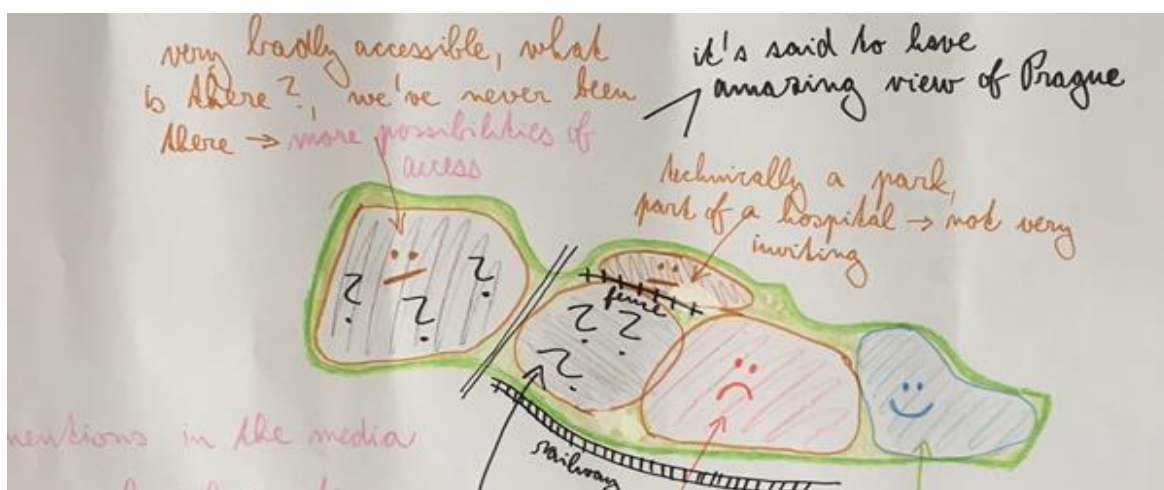 very badly accessible, what
is there?, we've never been
there → more possibilities of
access
it's said to have
amazing view of Prague
technically a park,
part of a hospital → not very
inviting
? ? ?
fence
? ? ?
railway
mentions in the media